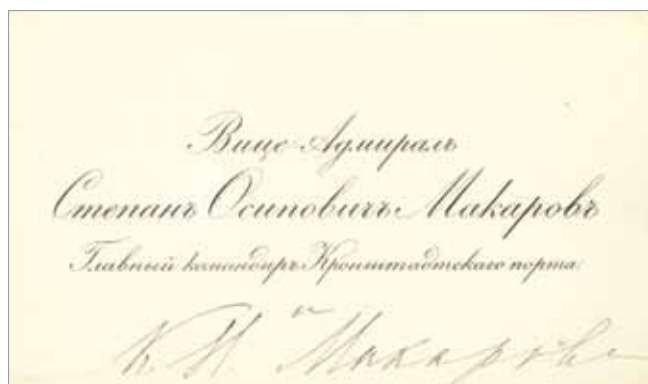 Вице Адмиралъ
Степанъ Осиповичъ Макаровъ
Главный командиръ Кронштадтскаго порта
К. Н.